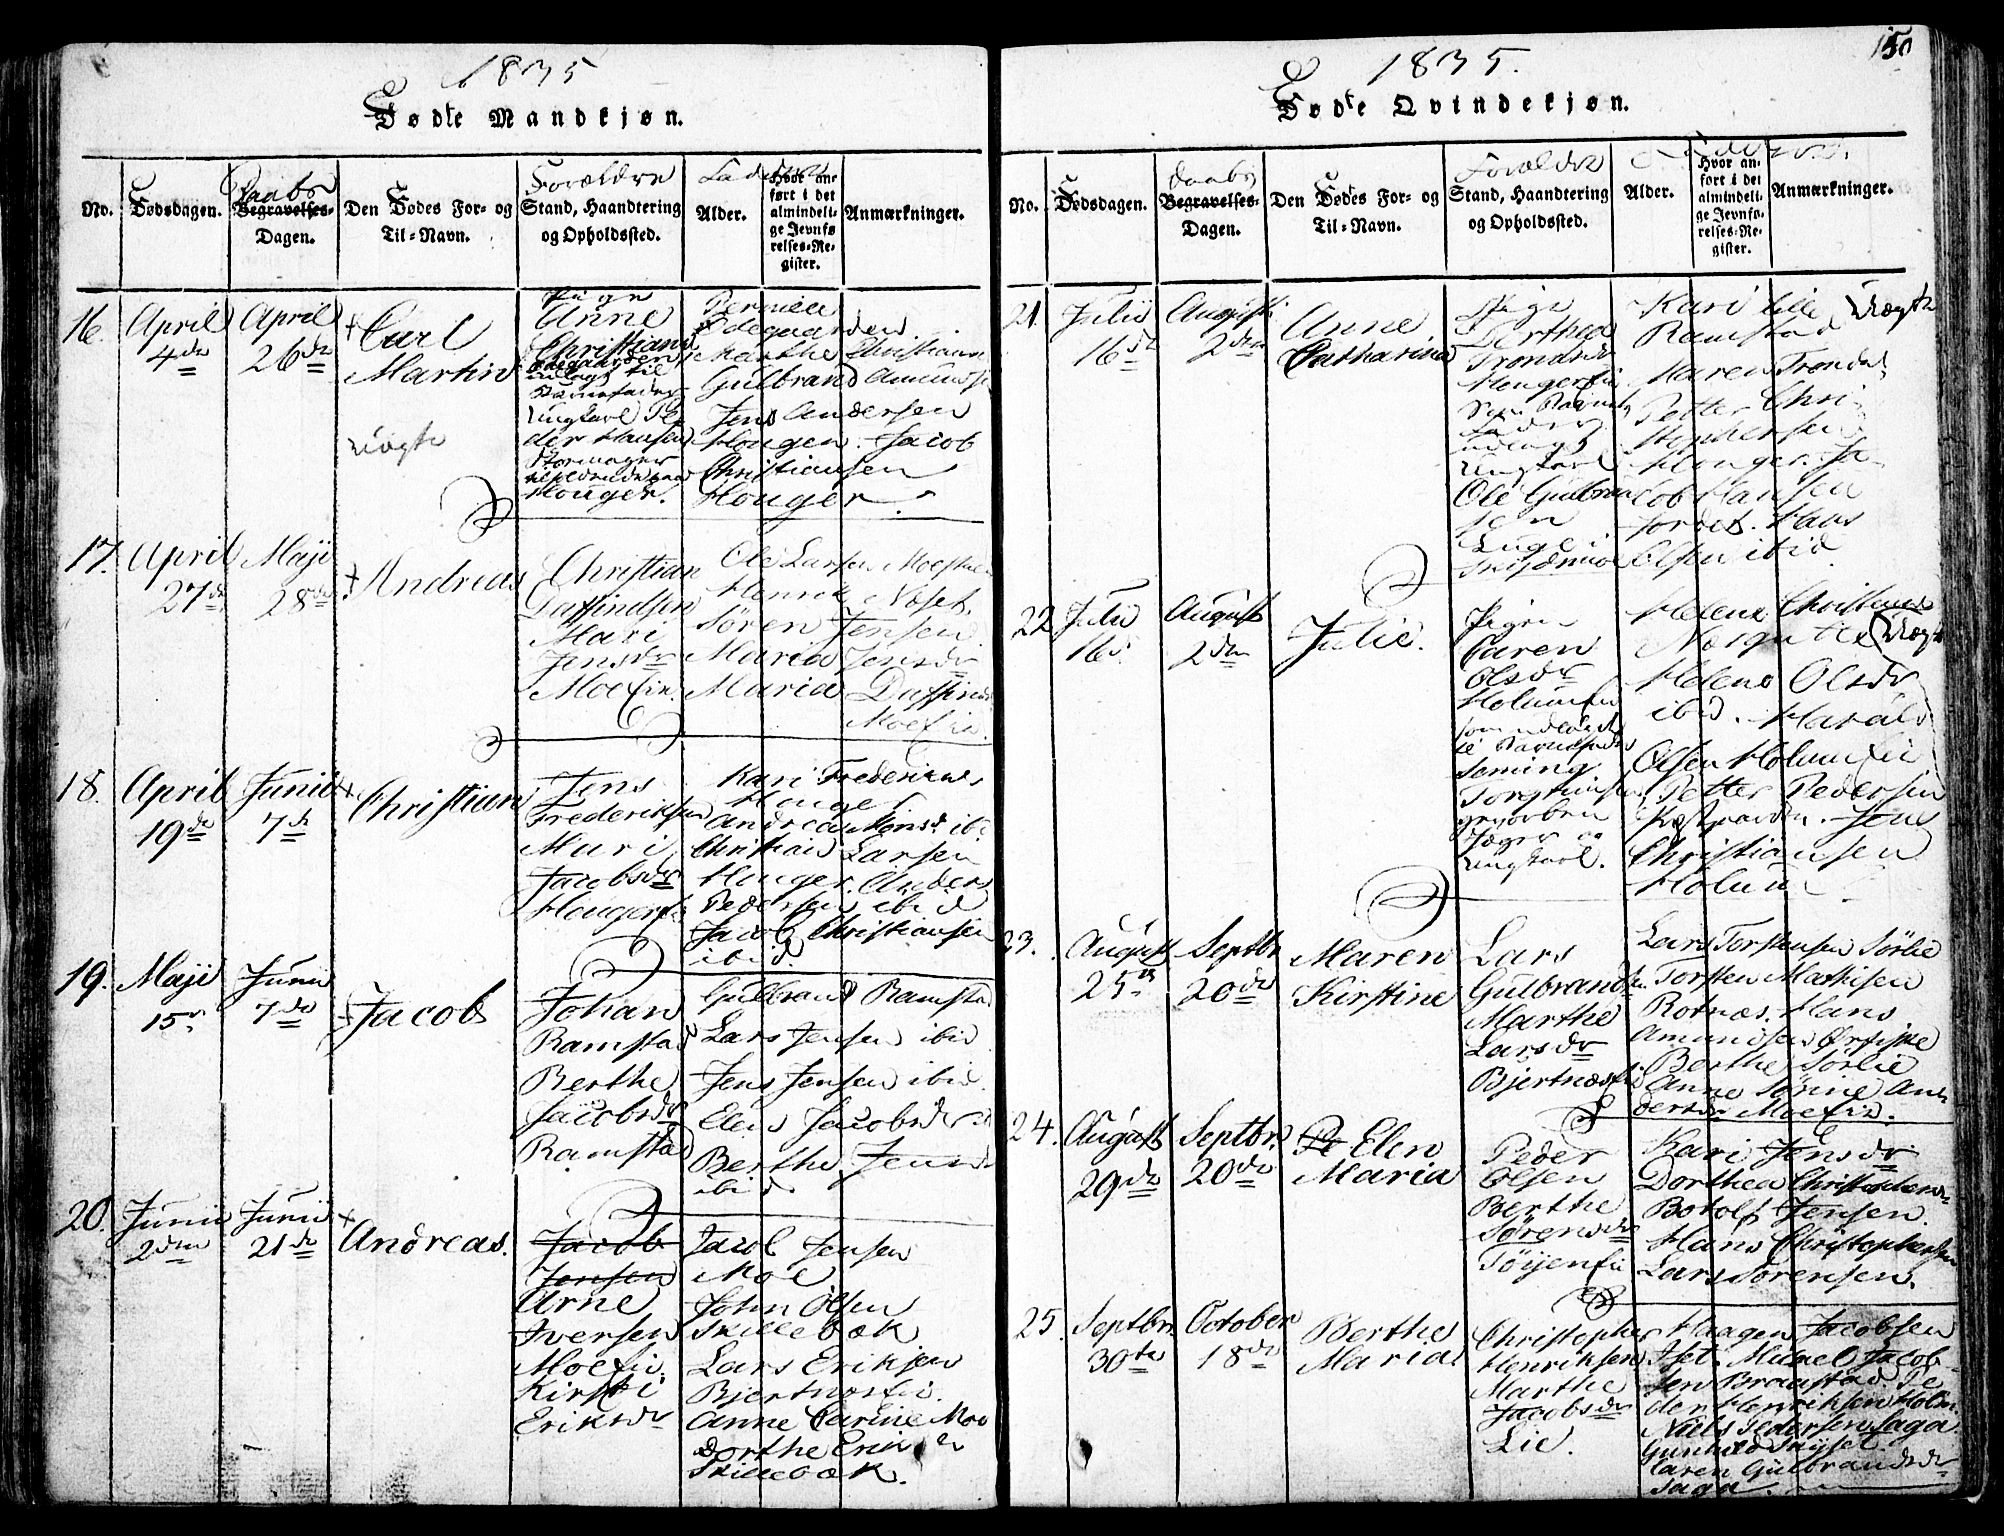 1835
Fødte Mandkjøn.
Forældre
Daabs
No.
Dødsdagen.
Begravelses-
Dagen.
Den Dødes For- og
Til-Navn.
Stand, Haandtering
og Opholdssted.
Alder.
Hvor an-
ført i det
almindeli-
ge Jevnfø
relses-Re-
gister.
Anmærkninger.
16.
April
4de
April
26de
Carl
Martin
uægte
Pige
Anne
Christiansd
Ødegaarden
udlagt til
Barnefader
Ungkarl Pe
der Hansen
Houger.
Pernille
Ødegaarden
Marthe Christians
Gulbrand Amunds
Jens Andersen
Hougen. Jacob
Christiansen
Houger.
17.
April
27de
Maji
28de
Andreas
Christian
Daffindsen
Mari
Jensdr
Moe
Ole Larsen
Henrik Noset.
Søren Jensen
Maria Jensdr
Maria Daffinds
Moe
18.
April
19de
Junii
7de
Christian
Jens
Frederiksen
Mari
Jacobsdr
Houger
Kari Frederiksd
Houger
Andrea Monsd. ibi
Christian Larsen
Houger. Anders
Pedersen ibid
Jacob Christiansen
ibid.
19.
Maji
15.
Junii
7de
Jacob
Johan
Ramstad
Berthe
Jacobsdr
Ramstad
Gulbrand Ramstad
Lars Jensen ibid
Jens Jensen ibid.
Elen Jacobsdr
Berthe Jensd
ibid.
20.
Junii
2den
Junii
21de
Andreas.
Jacob
Jensen
Arne
Iversen
Moe
Kirsti
Eriksdr
Jacob Jensen
Moe
John Olsen
Skillebæk
Lars Eriksen
Bjertnæs
Anne Carine Moe
Dorthe Erik
Skillebæk.
1835.
150
Fødte Qvindekjøn.
Forældre
Daabs
No.
Dødsdagen.
Begravelses-
Dagen.
Den Dødes For- og
Til-Navn.
Stand, Haandtering
og Opholdssted.
Alder.
Hvor an-
ført i det
almindeli-
ge Jevnfø-
relses-Re-
gister.
Anmærkninger.
21.
Julii
16de
Augusti
2den
Anne
Catharina
Pige
Dorthea
Trondsdr
Houger
udlagt
Ungkarl
Ole Gulbran
sen
Kari lille
Ramstad
Maren Tronds
Petter Chri-
stophersen
Houger. Ja-
cob Hansen
Hans
Olsen ibid.
Uægte
22
Julii
16
August
2den
Julie.
Pigen
Caren
Olsdr
Holum
som udlagde
Seming
Torstensen
Ungkarl.
Helene Christians
Helene Olsdr
ibid. Harald
Olsen Holum
Petter Pedersen
Præstgaarden. Jens
Christiansen
Holum
Uægte
23.
August
25de
Septbr
20de
Maren
Kirstine
Lars
Gulbrands
Marthe
Larsdr
Bjertnæs
Lars Torstensen Sørlie
Torsten Mathisen
Rotnæs. Hans
Amundsen
Berthe Sørlie
Anne Sørine An-
dersdr Moe
24.
August
29de
Septbr.
20de
Pe Elen
Maria
Peder
Olsen
Berthe
Sørensdr
Tøyen
Kari Jensdr
Dorthea Christophers
Botolf Jensen.
Hans Christophersen
Lars Sørensen.
25.
Septbr.
30te
October
18de
Berthe
Maria
Christopher
Henriksen
Marthe
Jacobsdr
Lie.
Haagen Jacobsen
Mikkel Jacob-
sen Braastad. Pe
der Henriksen Holm
Niels Pedersen Saga
Gunhild
Caren Gulbrandsdr
Saga.